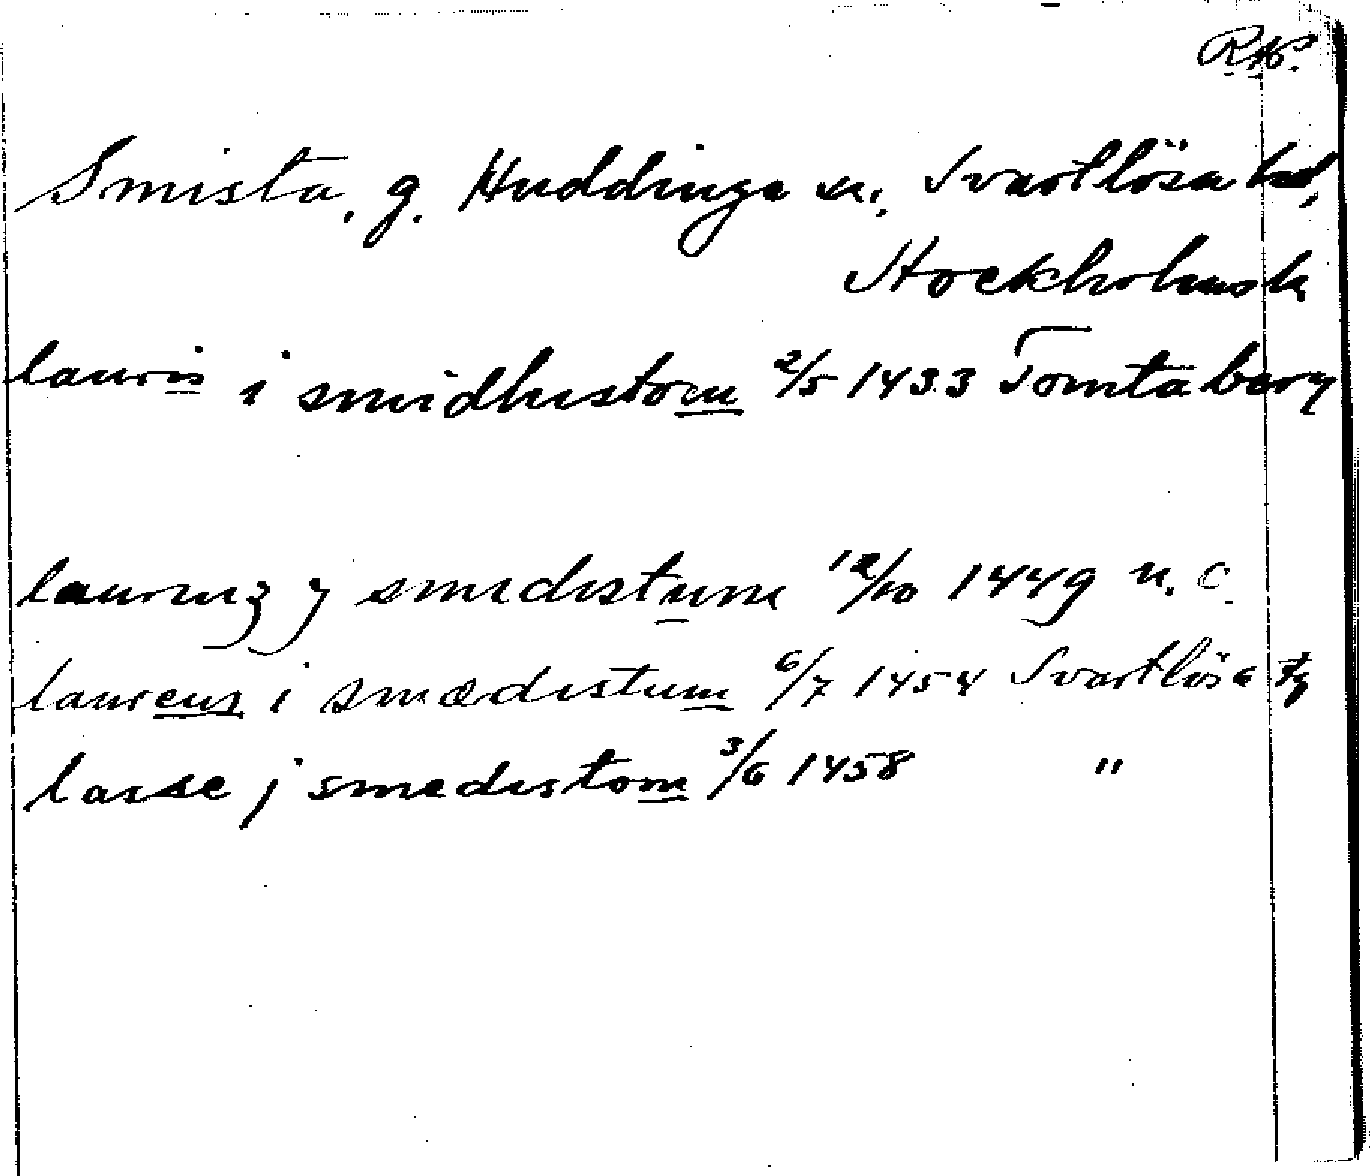 RAP.
Smista, g. Huddinge sn., Svartlösa hd,
Stockholms l.
lauris i smidhistom 2/5 1433 Tomtaberg
laurenz j smedistum 12/10 1449 u. o.
laurens i smædistum 6/7 1454 Svartlösa tg
lasse j smedistom 3/6 1458 "